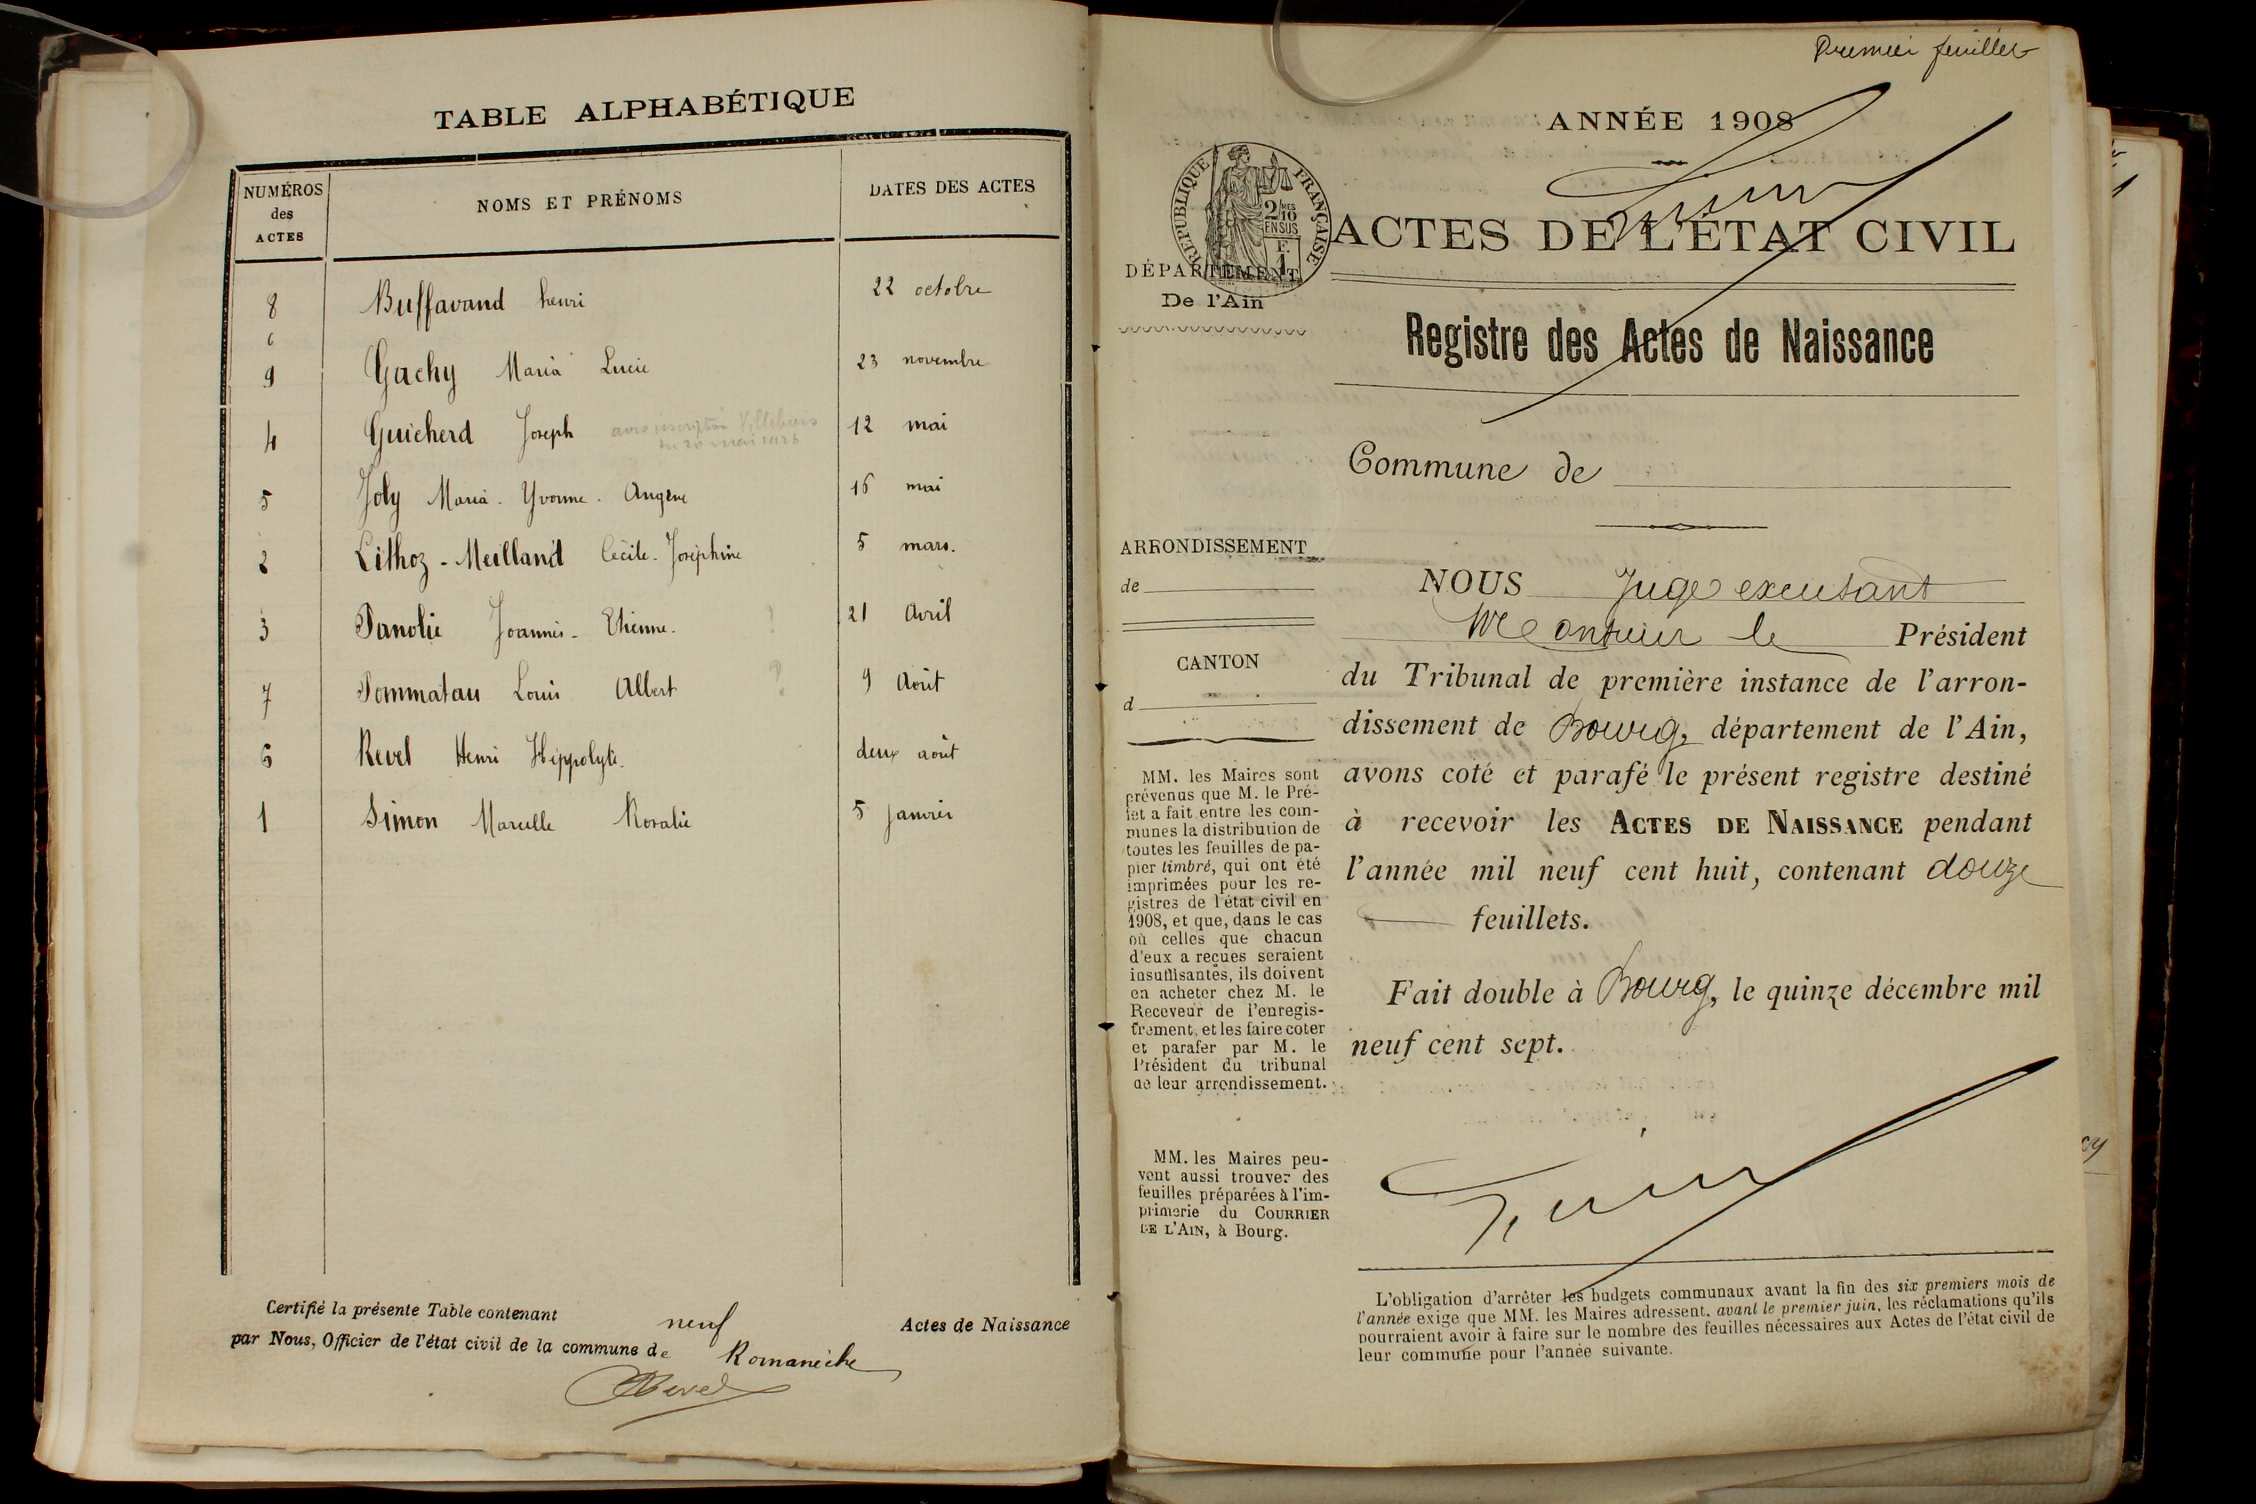 TABLE ALPHABÉTIQUE
NUMÉROS des ACTES
NOMS ET PRÉNOMS
DATES DES ACTES
8 Buffavand henri 22 octobre
9 Gachy Maria Lucie 23 novembre
4 Guicherd Joseph 12 mai
5 Joly Maria - Yvonne - Angène 16 mai
2 Lithoz - Meilland Cécile - Joséphine 5 mars.
3 Panolie Joannès - Etienne. 21 Avril
7 Pommatau Louis Albert 9 Août
6 Revel Henri Hippolyte. deux août
1 Simon Marcelle Rosalie 5 janvier
Certifié la présente Table contenant neuf Actes de Naissance
par Nous, Officier de l'état civil de la commune de Romanèche
Revel
Premier feuillet
ANNÉE 1908
RÉPUBLIQUE FRANÇAISE
2/10 MES
EN SUS
F
1
ACTES DE L'ÉTAT CIVIL
DÉPARTEMENT
De l'Ain
Registre des Actes de Naissance
Commune de
ARRONDISSEMENT
de
CANTON
d
MM. les Maires sont
prévenus que M. le Pré-
fet a fait entre les com-
munes la distribution de
toutes les feuilles de pa-
pier timbré, qui ont été
imprimées pour les re-
gistres de l'état civil en
1908, et que, dans le cas
où celles que chacun
d'eux a reçues seraient
insuffisantes, ils doivent
en acheter chez M. le
Receveur de l'enregis-
trement, et les faire coter
et parafer par M. le
Président du tribunal
de leur arrondissement.
MM. les Maires peu-
vent aussi trouver des
feuilles préparées à l'im-
primerie du COURRIER
DE L'AIN, à Bourg.
NOUS Juge excusant
Monsieur le Président
du Tribunal de première instance de l'arron-
dissement de Bourg, département de l'Ain,
avons coté et parafé le présent registre destiné
à recevoir les ACTES DE NAISSANCE pendant
l'année mil neuf cent huit, contenant douze
feuillets.
Fait double à Bourg, le quinze décembre mil
neuf cent sept.
L'obligation d'arrêter les budgets communaux avant la fin des six premiers mois de
l'année exige que MM. les Maires adressent, avant le premier juin, les réclamations qu'ils
pourraient avoir à faire sur le nombre des feuilles nécessaires aux Actes de l'état civil de
leur commune pour l'année suivante.